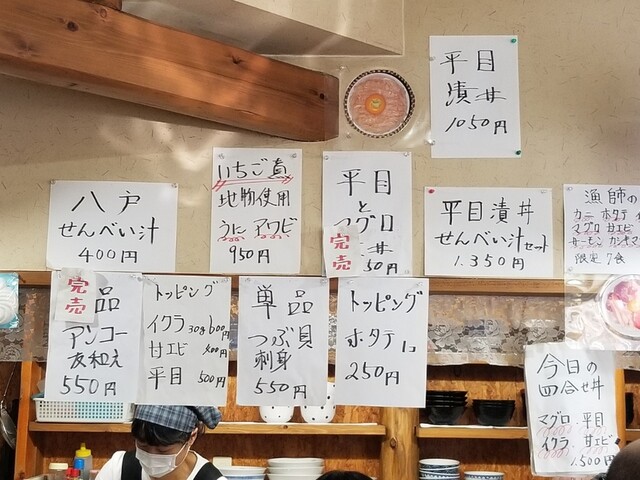 平目
漬丼
1050円
八戸
せんべい汁
400円
いちご煮
地物使用
うに アワビ
950円
平目
と
マグロ
丼
50円
完売
平目漬丼
せんべい汁セット
1.350円
漁師の
カニ ホタテ
マグロ 甘エビ
サーモン
限定 7食
完売
品
アンコー
友和え
550円
トッピング
イクラ 30g 600円
甘エビ 400円
平目 500円
単品
つぶ貝
刺身
550円
トッピング
ホタテ 1コ
250円
今日の
四合せ丼
マグロ 平目
イクラ 甘エビ
1.500円